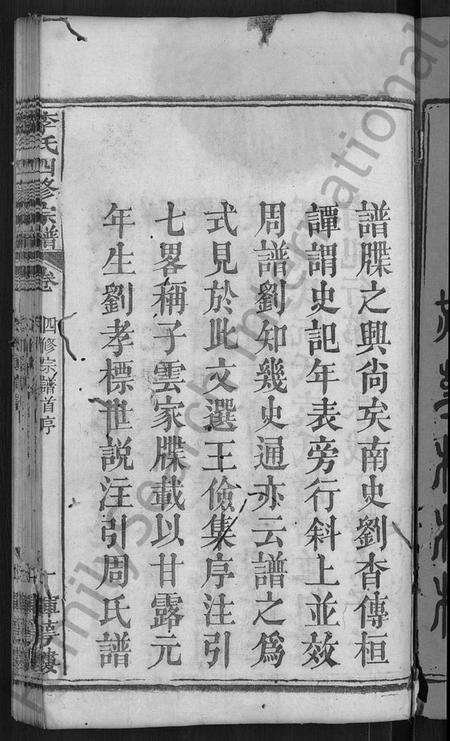 譜牒之興尙矣南史劉杳傳桓
譚謂史記年表旁行斜上並效
周譜劉知幾史通亦云譜之為
式見於此文選王儉集序注引
七畧稱子雲家牒載以甘露元
年生劉孝標世說注引周氏譜
李氏四修宗譜
卷
四修宗譜首序
familysearch international